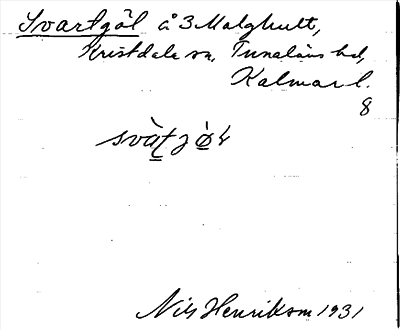 Svartgöl å 3 Malghult,
Kristdala sn, Tunaläns hd,
Kalmar l.
8
Nils Henrikson 1931